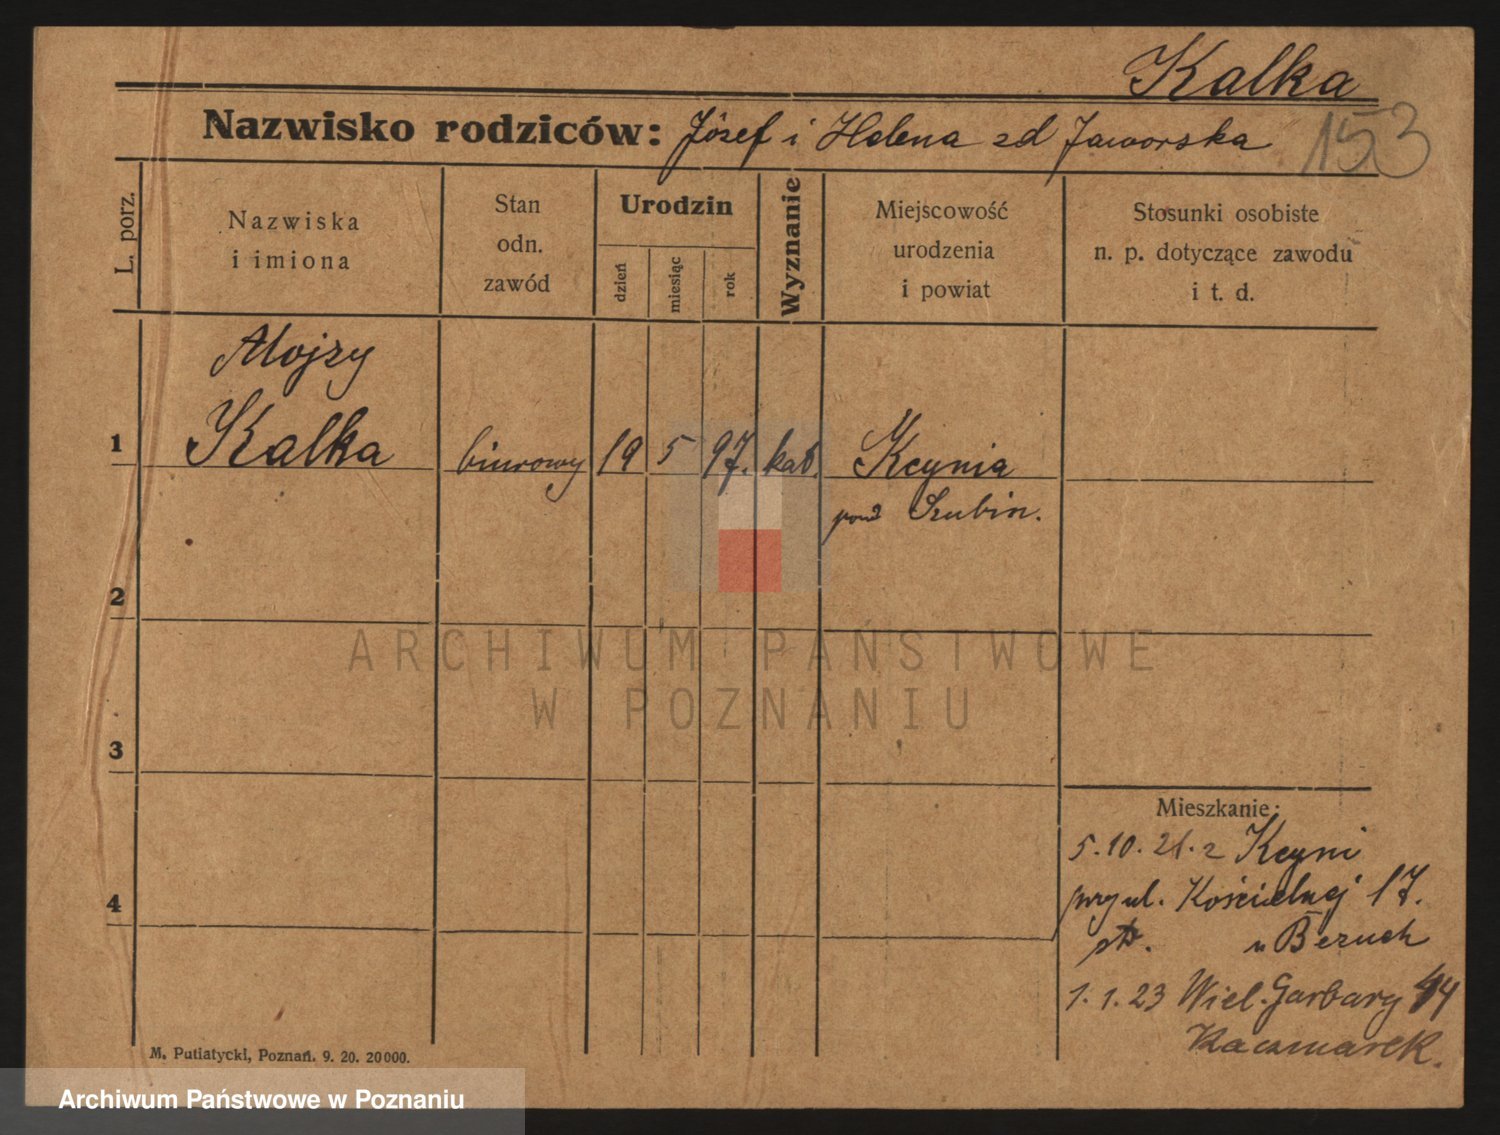 Kalka
Nazwisko rodziców: Józef i Helena zd Jaworska 153
L. porz.
Nazwiska
i imiona
Stan
odn.
zawód
Urodzin
dzień
miesiąc
rok
Wyznanie
Miejscowość
urodzenia
i powiat
Stosunki osobiste
n. p. dotyczące zawodu
i t. d.
Alojzy
1 Kalka biurowy 19 5 97. kat. Kcynia
pow Szubin.
2
3
4
Mieszkanie:
5.10.21. z Kcyni
przy ul. Kościelnej 17.
u Bezuch
1.1.23 Wiel. Garbary 44
Kaczmarek.
M. Putiatycki, Poznań. 9. 20. 20000.
ARCHIWUM PAŃSTWOWE
W POZNANIU
Archiwum Państwowe w Poznaniu